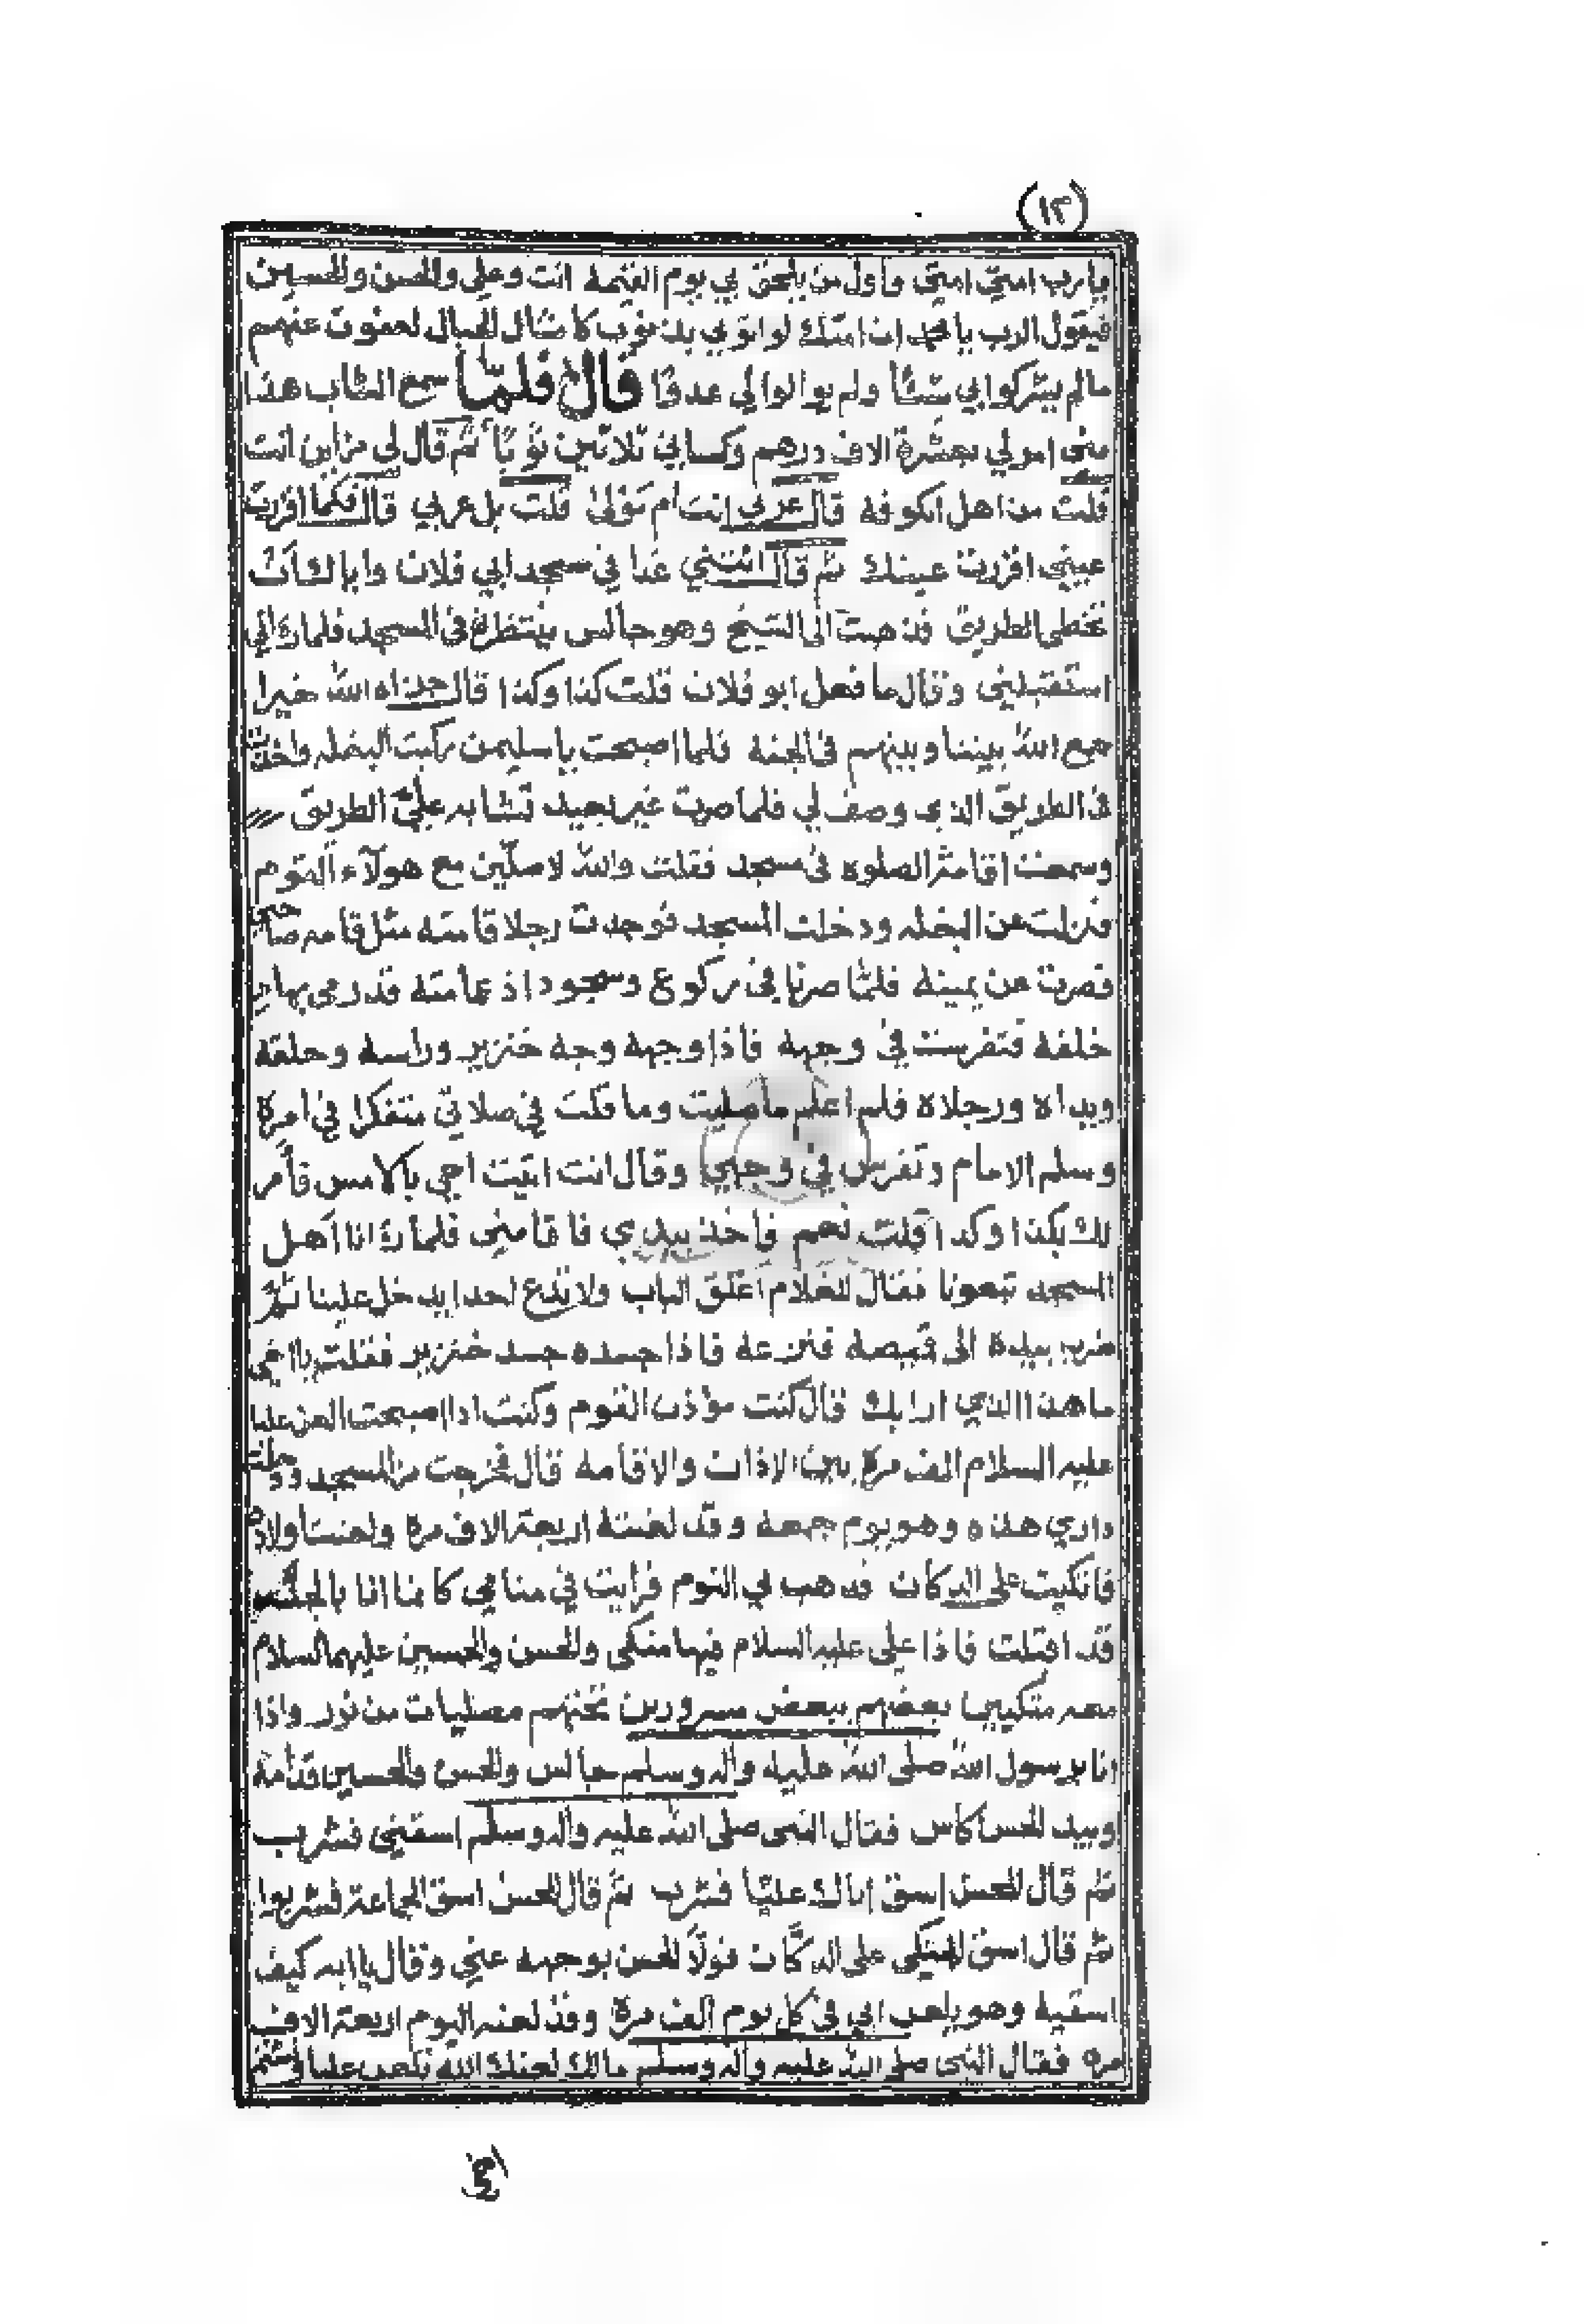 (١٣)
يارب امتي امتي واول من يلحق بي يوم القيمة انت وعلي والحسن والحسين
فيقول الرب يا محمد ان امتك لو اتوني بذنوب كامثال الجبال لعفوت عنهم
مالم يشركوا بي شيئا ولم يوالوا لي عدوًّا قال فلمّا سمع الشاب هذا
مني امر لي بعشرة الاف درهم وكساني ثلاثين ثوبًا ثم قال لي من اين انت
قلت من اهل الكوفه قال عربي انت ام مَوْلىٰ قلت بل عربي قال فكما اقررت
عيني اقررت عينك ثم قال ائتني غدا في مسجد ابي فلان واياك ان
تخطى الطريق فذهبت الى الشيخ وهو جالس ينتظرني في المسجد فلما رٰاني
استقبلني وقال ما فعل ابو فلان قلت كذا وكذا قال جزاه الله خيرا
جمع الله بيننا وبينهم في الجنة فلما اصبحت يا سليمن ركبت البغله واخذت
في الطريق الذي وصف لي فلما صرت غير بعيد تشابه عليّ الطريق
وسمعت اقامة الصلوه في مسجد فقلت والله لاصلّين مع هولآء القوم
فنزلت عن البغله ودخلت المسجد فوجدت رجلا قامته مثل قامه صاحبي
فصرت عن يمينه فلمّا صرنا في ركوع وسجود اذ عمامته قد رمى بها من
خلفه فتفرست في وجهه فاذا وجهه وجه خنزير وراسه وحلقه
ويداه ورجلاه فلم اعلم ما صليت وما قلت في صلاتي متفكرا في امره
وسلم الامام وتفرس في وجهي وقال انت اتيت اخي بالامس فأمر
لك بكذا وكذا قلت نعم فاخذ بيدي فاقامني فلما رٰانا اهل
المسجد تبعونا فقال للغلام اغلق الباب ولا تدع احدا يدخل علينا ثمّ
ضرب بيده الى قميصه فنزعه فاذا جسده جسد خنزير فقلت يا اخي
ما هذا الذي ارا بك قال كنت مؤذن القوم وكنت اذا اصبحت العن عليا
عليه السلام الف مرة بين الاذان والاقامه قال فخرجت من المسجد ودخلت
داري هذه وهو يوم جمعه وقد لعنته اربعة الاف مره ولعنت اولاده
فاتكيت على الدكان فذهب بي النوم فرايت في منامي كانما انا بالجنة
قد اقبلت فاذا علي عليه السلام فيها متكي والحسن والحسين عليهما السلام
معه متكيين بعضهم ببعض مسرورين تحتهم مصليات من نور واذا
انا برسول الله صلى الله عليه وآله وسلم جالس والحسن والحسين قدّامه
وبيد الحسن كاس فقال النبي صلى الله عليه وآله وسلم اسقني فشرب
ثم قال للحسن اسق اباك عليًّا فشرب ثم قال للحسن اسق الجماعة فشربوا
ثم قال اسق المتكي على الدكّان فولّا الحسن بوجهه عني وقال يا ابه كيف
اسقيه وهو يلعن ابي في كل يوم الف مرة وقد لعنه اليوم اربعة الاف
مره فقال النبي صلى الله عليه وآله وسلم مالك لعنك الله تلعن عليا وتشتم
اخي